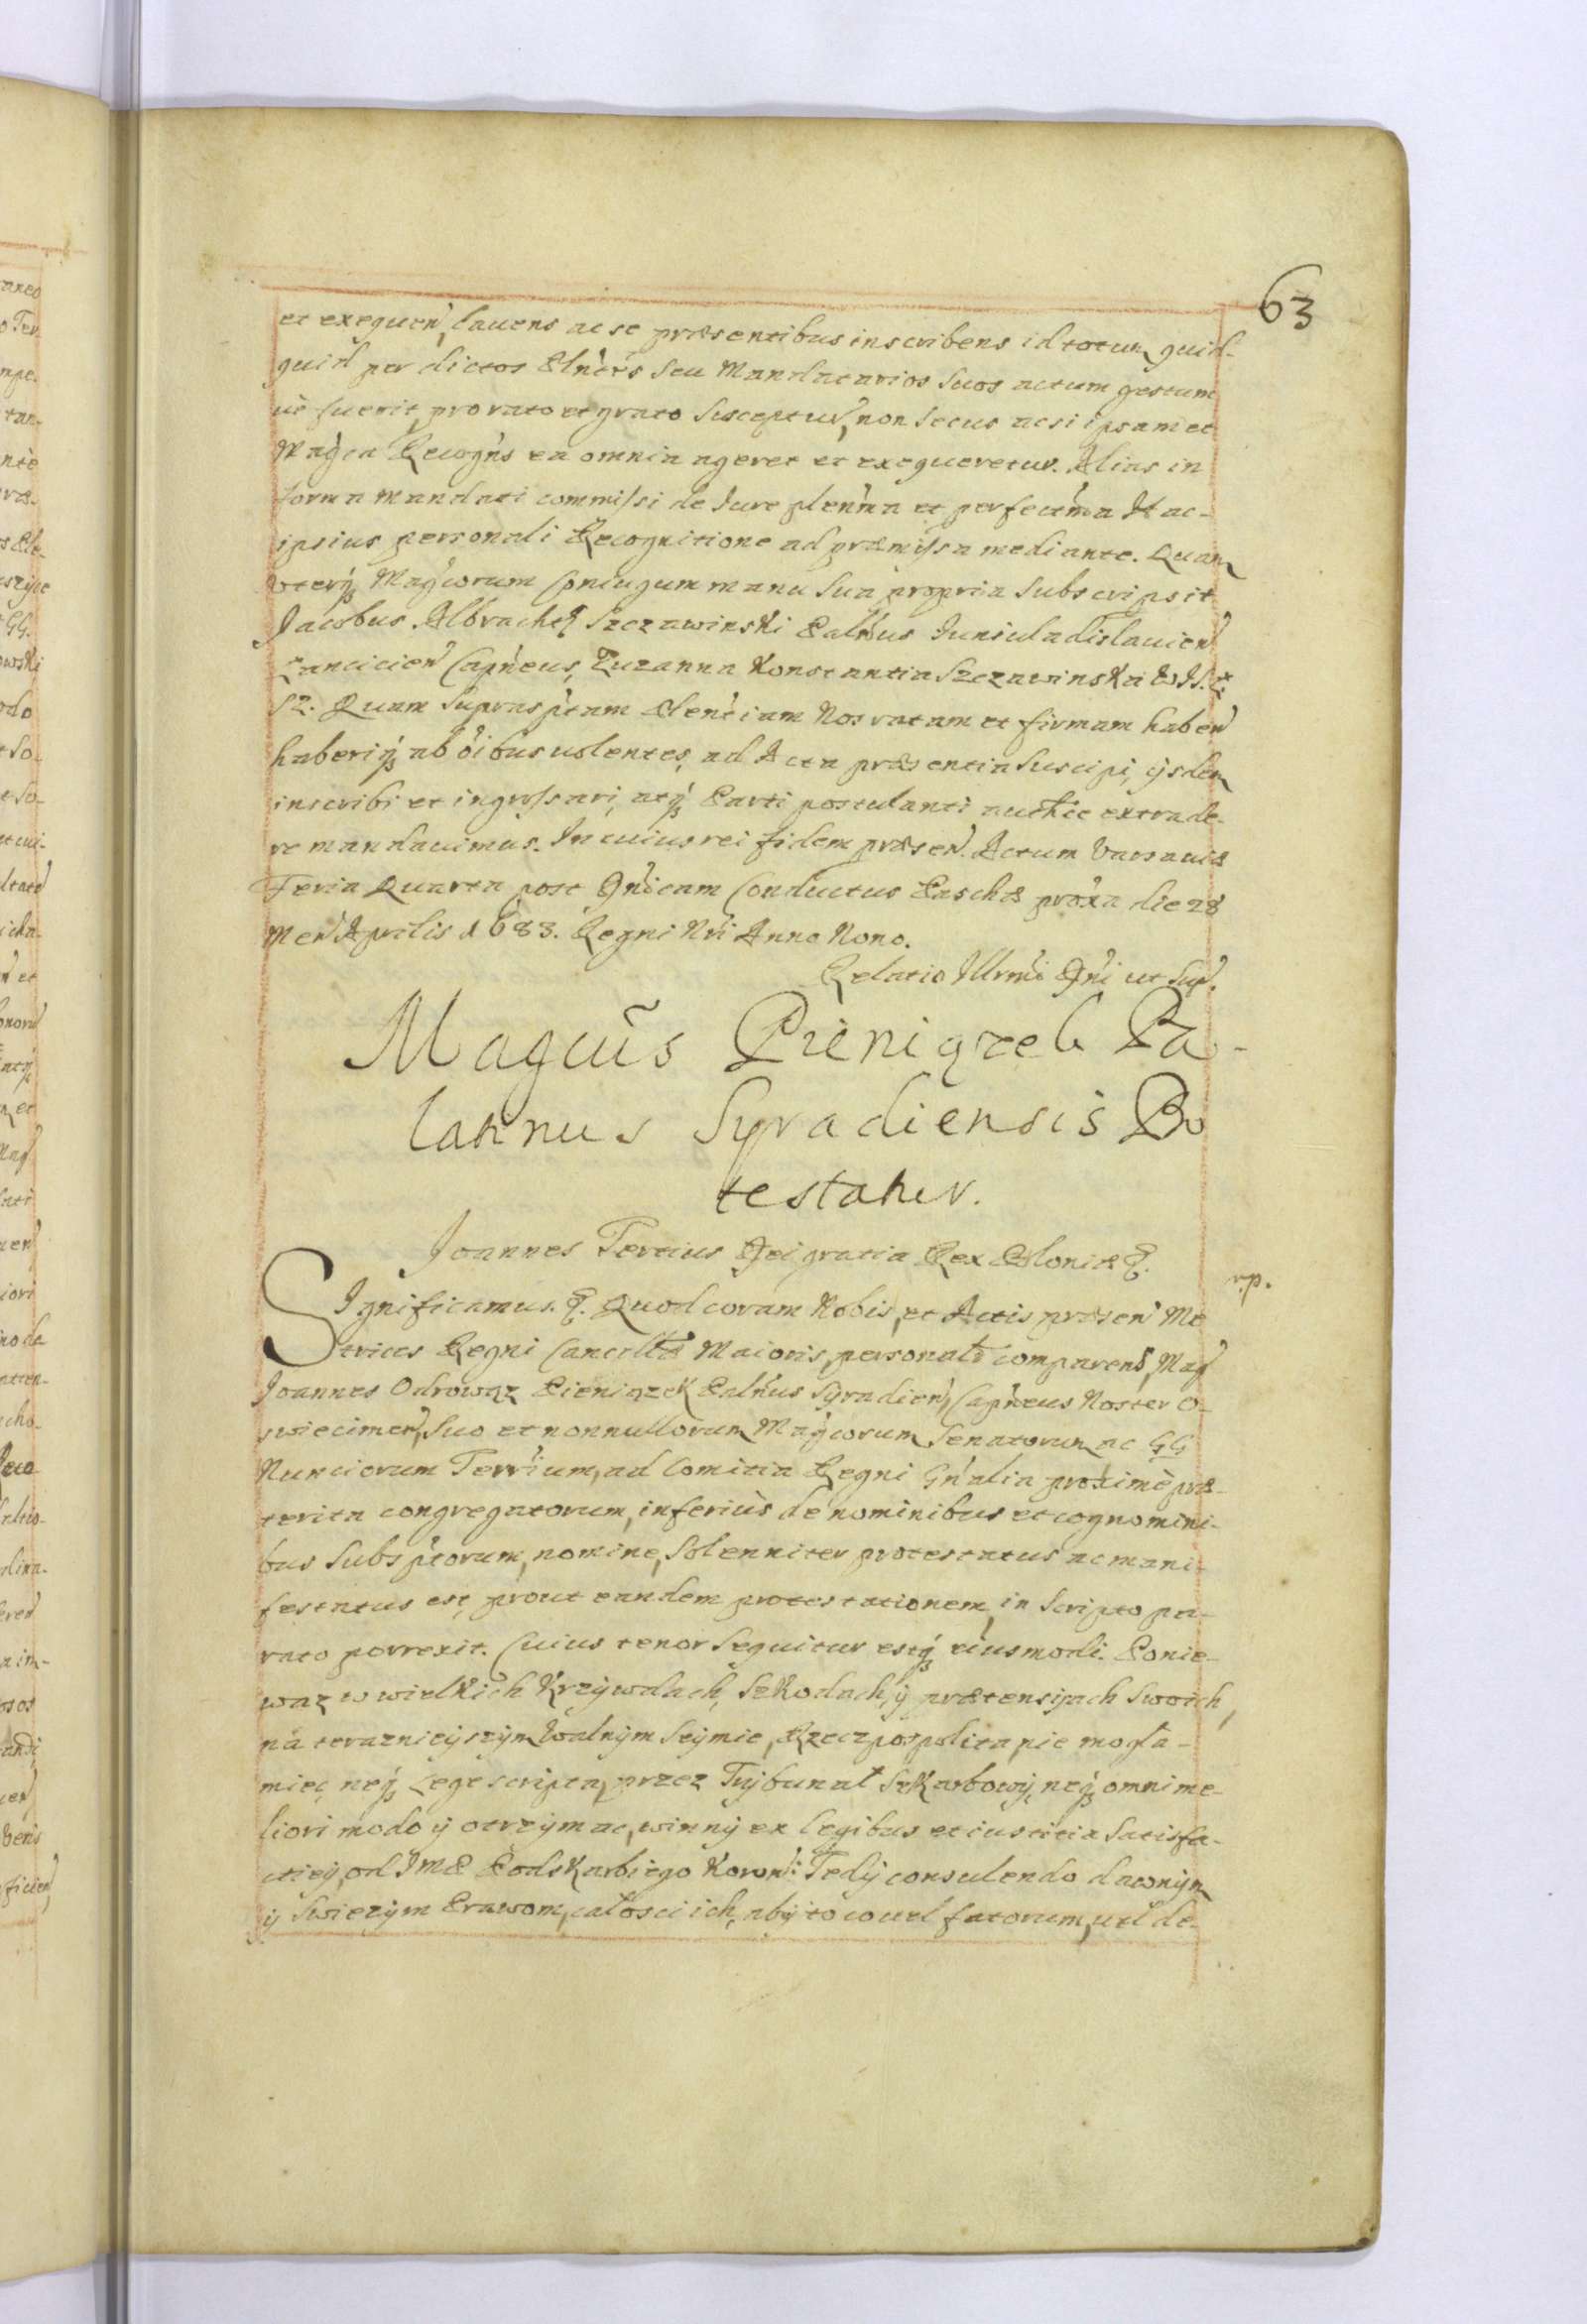 63
et exequen, Cavens ac se præsentibus inscribens id totum quid-
quid per dictos Plnćrs seu Mandatarios suos actum gestum
uè fuerit, pro rato et grato suscepturũ, non secus ac si ipsamet
Magca Recogńs ea omnia ageret et exequeretur. Alias in
forma mandati commissi de Iure pleńma et perfectma Hac-
ipsius personali Recognitione ad præmissa mediante. Quam
uterq Magcorum Coniugum manu sua propria subscripsit
Jacobus Albracht Szczawinski Palńus Iuniuladislauien
Lancicien Capńeus, Zuzanna Konstantia Szczawinska
Sz. Quam suprasptam Plenćiam Nos ratam et firmam haben
haberiq ab oibus uolentes, ad Acta præsentia suscipi, ijsdem
inscribi et ingrossari, atq Parti postulanti authće extrade-
re mandauimus. In cuius rei fidem præsen. Actum Varsauiæ
Feria Quarta post Dńicam Conductus Paschæ proxa die 28
Men Aprilis 1683. Regni Nri Anno Nono.
Relatio Illrmi Dńi ut sup.
Magcus Pieniązek Pa-
latinus Syradiensis Pro
testatur.
Joannes Tertius Dei gratia Rex Poloniæ &.
rp.
SIgnificamus. &. Quod coram Nobis, et Actis præsen Me
trices Regni Cancellæ Maioris, personalr comparens, Mag
Joannes Odrowąz Pieniązek Palńus Syradien, Capńeus Noster O-
swiecimen, suo et nonnullorum Magcorum Senatorum ac GG
Nunciorum Terrium, ad Comitia Regni Gńalia proximè præ-
terita congregatorum, inferiùs de nominibus et cognomini-
bus subsptorum, nomine, solenniter protestatus ac mani-
festatus est, prout eandem protestationem, in scripto pa-
rato porrexit. Cuius tenor sequitur estq eiusmodi. Ponie-
waz w wielkich Krzywdach, szkodach, y prætensyach swoich,
ná teraznieyszym Walnym Seymie, Rzeczpospolita nie mogła-
miec neq Lege scripta, przez Trybunał Skarbowy, neq omni me-
liori modo y otrzymac, winny ex legibus et iustitia satisfa-
ctiey, od JMP Podskarbiego Koronń: Tedy consulendo dawnym
y swiezym Prawom, całosci ich, aby to co uel fatorum, uel de-